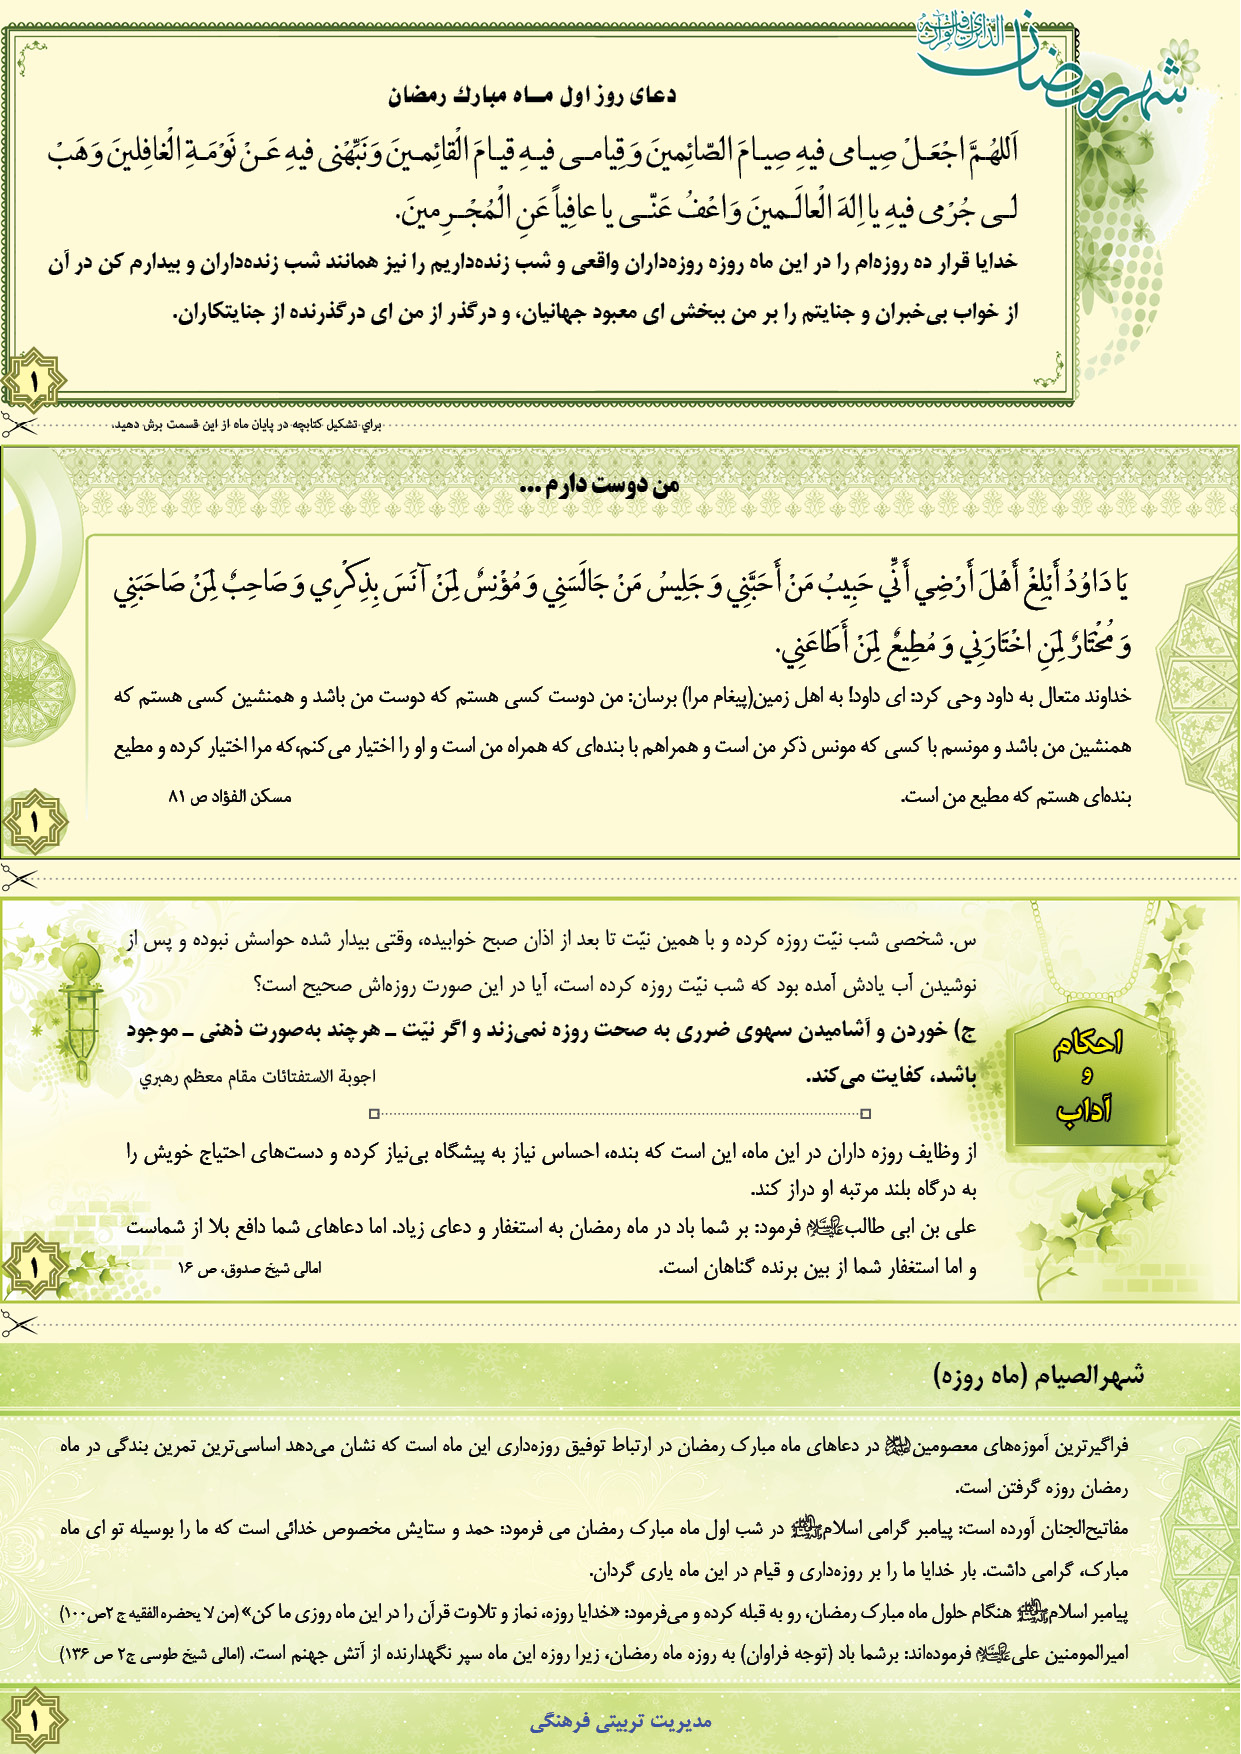 شهر رمضان
الذی انزل فیه القرآن
دعای روز اول مــاه مبارك رمضان
اَللهُمَّ اجْعَلْ صِیامى فیهِ صِیامَ الصّائِمینَ وَ قِیامى فیهِ قیامَ الْقائِمینَ وَ نَبِّهْنى فیهِ عَنْ نَوْمَةِ الْغافِلینَ وَ هَبْ
لى جُرْمى فیهِ یا اِلهَ الْعالَمینَ وَ اعْفُ عَنّى یا عافِیاً عَنِ الْمُجْرِمینَ.
خدایا قرار ده روزه‌ام را در این ماه روزه روزه‌داران واقعی و شب زنده‌داریم را نیز همانند شب زنده‌داران و بیدارم کن در آن
از خواب بی‌خبران و جنایتم را بر من ببخش ای معبود جهانیان، و درگذر از من ای درگذرنده از جنایتکاران.
۱
براي تشكيل كتابچه در پايان ماه از اين قسمت برش دهيد.
من دوست دارم ...
يَا دَاوُدُ أَبْلِغْ أَهْلَ أَرْضِي أَنِّي حَبِيبُ مَنْ أَحَبَّنِي وَ جَلِيسُ مَنْ جَالَسَنِي وَ مُؤْنِسٌ لِمَنْ آنَسَ بِذِكْرِي وَ صَاحِبٌ لِمَنْ صَاحَبَنِي
وَ مُخْتَارٌ لِمَنِ اخْتَارَنِي وَ مُطِيعٌ لِمَنْ أَطَاعَنِي.
خداوند متعال به داود وحی کرد: ای داود! به اهل زمین(پیغام مرا) برسان: من دوست کسی هستم که دوست من باشد و همنشین کسی هستم که
همنشین من باشد و مونسم با کسی که مونس ذکر من است و همراهم با بنده‌ای که همراه من است و او را اختیار می‌کنم،که مرا اختیار کرده و مطیع
بنده‌ای هستم که مطیع من است. مسکن الفؤاد ص ۸۱
۱
س. شخصی شب نیّت روزه کرده و با همین نیّت تا بعد از اذان صبح خوابیده، وقتی بیدار شده حواسش نبوده و پس از
نوشیدن آب یادش آمده بود که شب نیّت روزه کرده است، آیا در این صورت روزه‌اش صحیح است؟
ج) خوردن و آشامیدن سهوی ضرری به صحت روزه نمی‌زند و اگر نیّت ـ هرچند به‌صورت ذهنی ـ موجود
باشد، کفایت می‌کند. اجوبة الاستفتائات مقام معظم رهبري
احکام
و
آداب
از وظایف روزه داران در این ماه، این است که بنده، احساس نیاز به پیشگاه بی‌نیاز کرده و دست‌های احتیاج خویش را
به درگاه بلند مرتبه او دراز کند.
علی بن ابی طالب علیه‌السلام فرمود: بر شما باد در ماه رمضان به استغفار و دعای زیاد. اما دعاهای شما دافع بلا از شماست
و اما استغفار شما از بین برنده گناهان است. امالی شیخ صدوق، ص ۱۶
۱
شهرالصیام (ماه روزه)
فراگیرترین آموزه‌های معصومین علیهم‌السلام در دعاهای ماه مبارک رمضان در ارتباط توفیق روزه‌داری این ماه است که نشان می‌دهد اساسی‌ترین تمرین بندگی در ماه
رمضان روزه گرفتن است.
مفاتیح‌الجنان آورده است: پیامبر گرامی اسلام ﷺ در شب اول ماه مبارک رمضان می فرمود: حمد و ستایش مخصوص خدائی است که ما را بوسیله تو ای ماه
مبارک، گرامی داشت. بار خدایا ما را بر روزه‌داری و قیام در این ماه یاری گردان.
پیامبر اسلام ﷺ هنگام حلول ماه مبارک رمضان، رو به قبله کرده و می‌فرمود: «خدایا روزه، نماز و تلاوت قرآن را در این ماه روزی ما کن» (من لا یحضره الفقیه ج ۲ص۱۰۰)
امیرالمومنین علی علیه‌السلام فرموده‌اند: برشما باد (توجه فراوان) به روزه ماه رمضان، زیرا روزه این ماه سپر نگهدارنده از آتش جهنم است. (امالی شیخ طوسی ج۲ ص ۱۳۶)
۱
مدیریت تربیتی فرهنگی